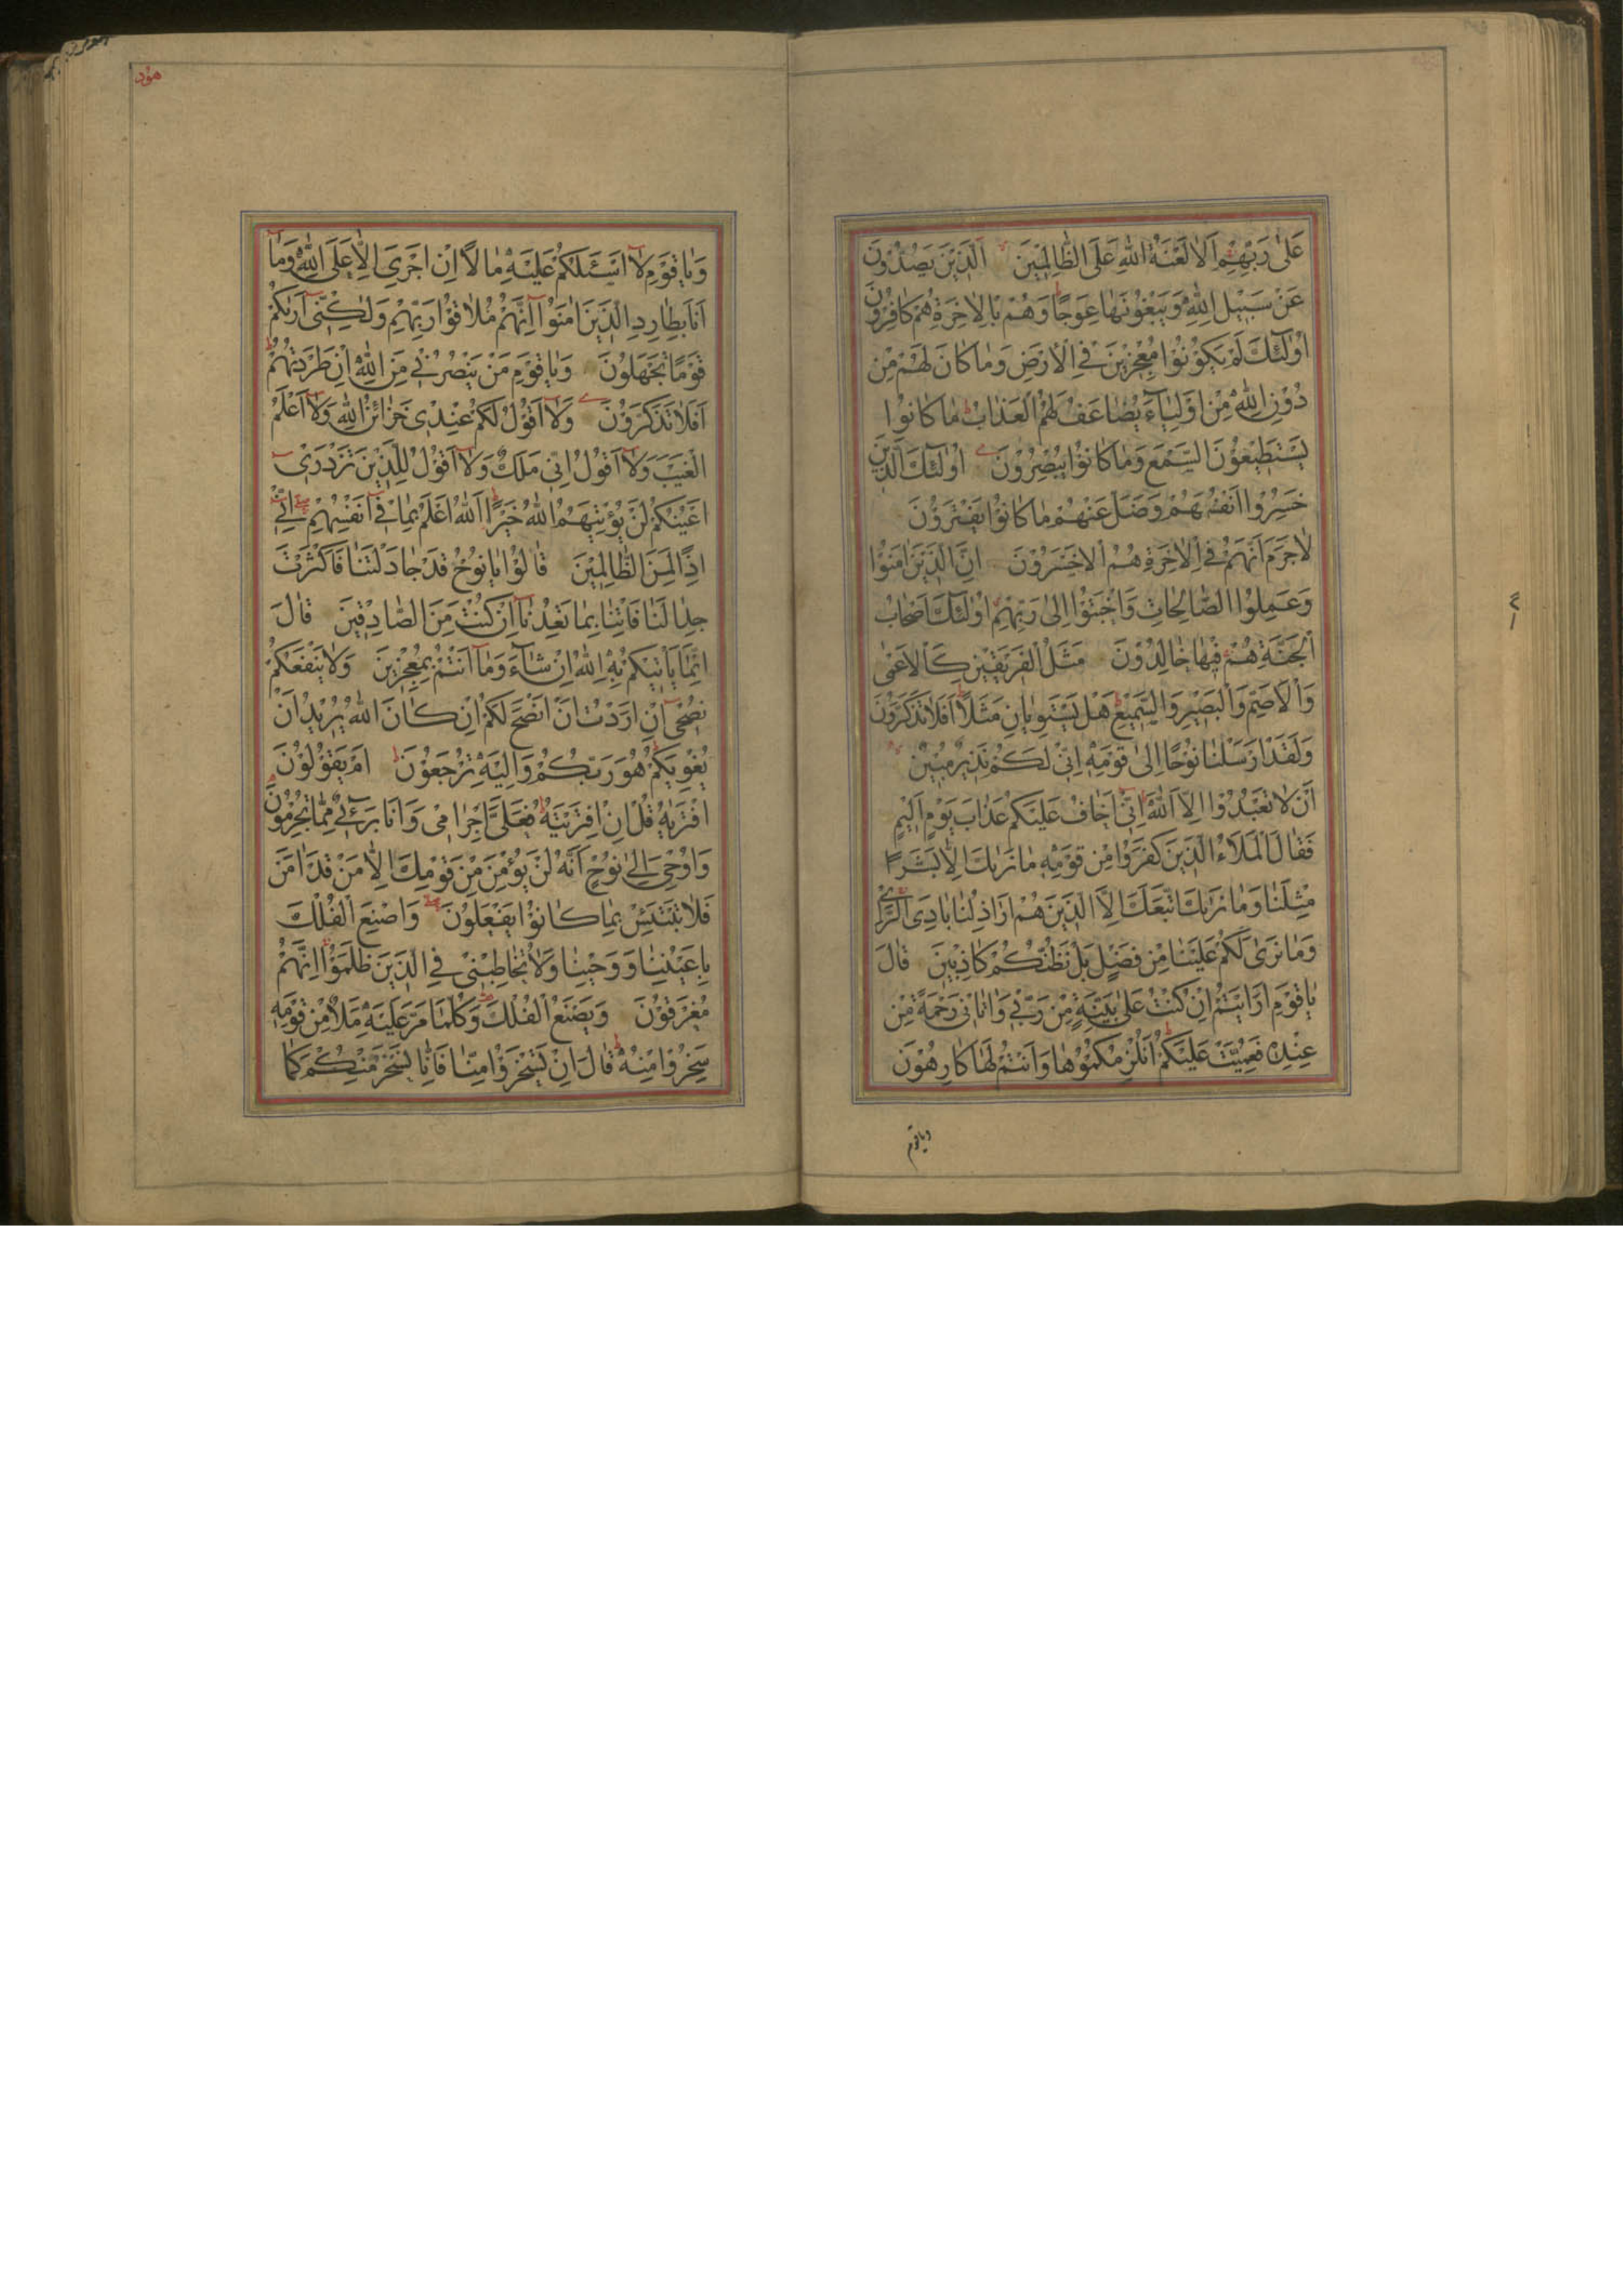 عَلٰى رَبِّهِمْ اَلَا لَعْنَةُ اللّٰهِ عَلَى الظَّالِمِيْنَ اَلَّذِيْنَ يَصُدُّوْنَ
عَنْ سَبِيْلِ اللّٰهِ وَيَبْغُوْنَهَا عِوَجًا وَهُمْ بِالْاٰخِرَةِ هُمْ كَافِرُوْنَ
اُولٰئِكَ لَمْ يَكُوْنُوْا مُعْجِزِيْنَ فِي الْاَرْضِ وَمَا كَانَ لَهُمْ مِنْ
دُوْنِ اللّٰهِ مِنْ اَوْلِيَآءَ يُضَاعَفُ لَهُمُ الْعَذَابُ مَا كَانُوْا
يَسْتَطِيْعُوْنَ السَّمْعَ وَمَا كَانُوْا يُبْصِرُوْنَ اُولٰئِكَ الَّذِيْنَ
خَسِرُوْا اَنْفُسَهُمْ وَضَلَّ عَنْهُمْ مَا كَانُوْا يَفْتَرُوْنَ
لَا جَرَمَ اَنَّهُمْ فِي الْاٰخِرَةِ هُمُ الْاَخْسَرُوْنَ اِنَّ الَّذِيْنَ اٰمَنُوْا
وَعَمِلُوا الصَّالِحَاتِ وَاَخْبَتُوْا اِلٰى رَبِّهِمْ اُولٰئِكَ اَصْحَابُ
الْجَنَّةِ هُمْ فِيْهَا خَالِدُوْنَ مَثَلُ الْفَرِيْقَيْنِ كَالْاَعْمٰى
وَالْاَصَمِّ وَالْبَصِيْرِ وَالسَّمِيْعِ هَلْ يَسْتَوِيَانِ مَثَلًا اَفَلَا تَذَكَّرُوْنَ
وَلَقَدْ اَرْسَلْنَا نُوْحًا اِلٰى قَوْمِهٖ اِنِّيْ لَكُمْ نَذِيْرٌ مُبِيْنٌ
اَنْ لَا تَعْبُدُوْا اِلَّا اللّٰهَ اِنِّيْ اَخَافُ عَلَيْكُمْ عَذَابَ يَوْمٍ اَلِيْمٍ
فَقَالَ الْمَلَاُ الَّذِيْنَ كَفَرُوْا مِنْ قَوْمِهٖ مَا نَرٰيكَ اِلَّا بَشَرًا
مِثْلَنَا وَمَا نَرٰيكَ اتَّبَعَكَ اِلَّا الَّذِيْنَ هُمْ اَرَاذِلُنَا بَادِيَ الرَّاْيِ
وَمَا نَرٰى لَكُمْ عَلَيْنَا مِنْ فَضْلٍ بَلْ نَظُنُّكُمْ كَاذِبِيْنَ قَالَ
يَا قَوْمِ اَرَاَيْتُمْ اِنْ كُنْتُ عَلٰى بَيِّنَةٍ مِنْ رَبِّيْ وَاٰتَانِيْ رَحْمَةً مِنْ
عِنْدِهٖ فَعُمِّيَتْ عَلَيْكُمْ اَنُلْزِمُكُمُوْهَا وَاَنْتُمْ لَهَا كَارِهُوْنَ
ويا قوم
هود
وَيَا قَوْمِ لَا اَسْئَلُكُمْ عَلَيْهِ مَالًا اِنْ اَجْرِيَ اِلَّا عَلَى اللّٰهِ وَمَا
اَنَا بِطَارِدِ الَّذِيْنَ اٰمَنُوْا اِنَّهُمْ مُلَاقُوْا رَبِّهِمْ وَلٰكِنِّيْ اَرٰيكُمْ
قَوْمًا تَجْهَلُوْنَ وَيَا قَوْمِ مَنْ يَنْصُرُنِيْ مِنَ اللّٰهِ اِنْ طَرَدْتُهُمْ
اَفَلَا تَذَكَّرُوْنَ وَلَا اَقُوْلُ لَكُمْ عِنْدِيْ خَزَائِنُ اللّٰهِ وَلَا اَعْلَمُ
الْغَيْبَ وَلَا اَقُوْلُ اِنِّيْ مَلَكٌ وَلَا اَقُوْلُ لِلَّذِيْنَ تَزْدَرِيْ
اَعْيُنُكُمْ لَنْ يُؤْتِيَهُمُ اللّٰهُ خَيْرًا اَللّٰهُ اَعْلَمُ بِمَا فِيْ اَنْفُسِهِمْ اِنِّيْ
اِذًا لَمِنَ الظَّالِمِيْنَ قَالُوْا يَا نُوْحُ قَدْ جَادَلْتَنَا فَاَكْثَرْتَ
جِدَالَنَا فَاْتِنَا بِمَا تَعِدُنَا اِنْ كُنْتَ مِنَ الصَّادِقِيْنَ قَالَ
اِنَّمَا يَاْتِيْكُمْ بِهِ اللّٰهُ اِنْ شَآءَ وَمَا اَنْتُمْ بِمُعْجِزِيْنَ وَلَا يَنْفَعُكُمْ
نُصْحِيْ اِنْ اَرَدْتُ اَنْ اَنْصَحَ لَكُمْ اِنْ كَانَ اللّٰهُ يُرِيْدُ اَنْ
يُغْوِيَكُمْ هُوَ رَبُّكُمْ وَاِلَيْهِ تُرْجَعُوْنَ اَمْ يَقُوْلُوْنَ
افْتَرٰيهُ قُلْ اِنِ افْتَرَيْتُهُ فَعَلَيَّ اِجْرَامِيْ وَاَنَا بَرِيْٓءٌ مِمَّا تُجْرِمُوْنَ
وَاُوْحِيَ اِلٰى نُوْحٍ اَنَّهُ لَنْ يُؤْمِنَ مِنْ قَوْمِكَ اِلَّا مَنْ قَدْ اٰمَنَ
فَلَا تَبْتَئِسْ بِمَا كَانُوْا يَفْعَلُوْنَ وَاصْنَعِ الْفُلْكَ
بِاَعْيُنِنَا وَوَحْيِنَا وَلَا تُخَاطِبْنِيْ فِي الَّذِيْنَ ظَلَمُوْا اِنَّهُمْ
مُغْرَقُوْنَ وَيَصْنَعُ الْفُلْكَ وَكُلَّمَا مَرَّ عَلَيْهِ مَلَاٌ مِنْ قَوْمِهٖ
سَخِرُوْا مِنْهُ قَالَ اِنْ تَسْخَرُوْا مِنَّا فَاِنَّا نَسْخَرُ مِنْكُمْ كَمَا